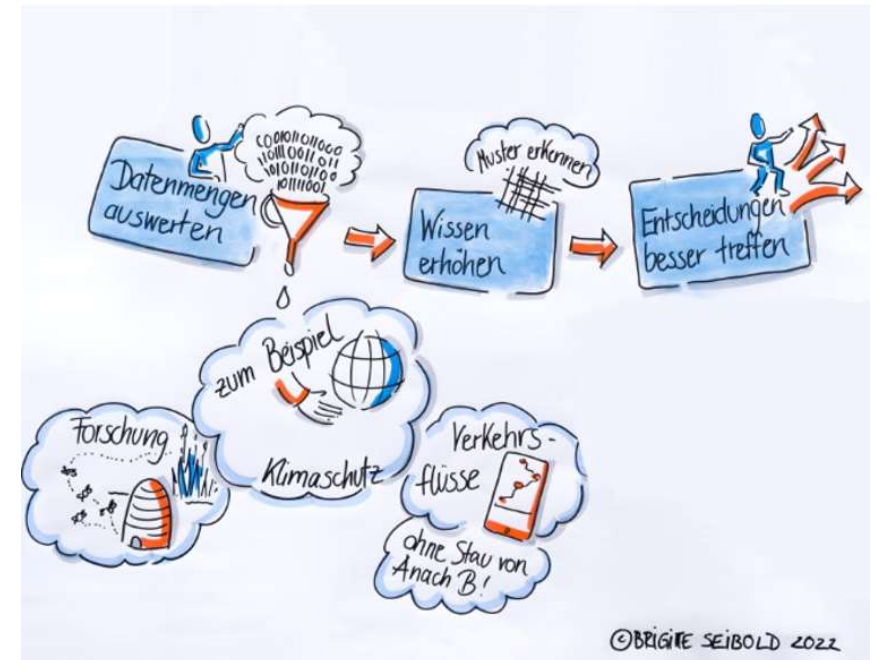 Datenmengen
auswerten
C00101101000
1011100110 011
101011010 0
10111001
Muster erkennen
Wissen
erhöhen
Entscheidungen
besser treffen
zum Beispiel
Klimaschutz
Forschung
Verkehrs-
flüsse
ohne Stau von
A nach B!
©BRIGITTE SEIBOLD 2022